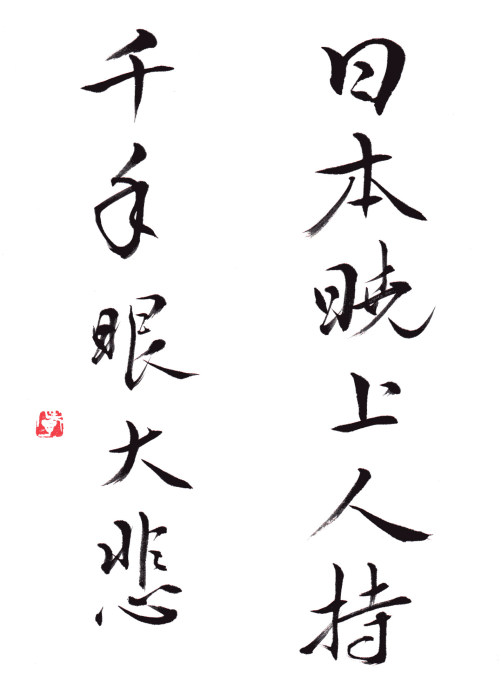 日本暁上人持
千手眼大悲